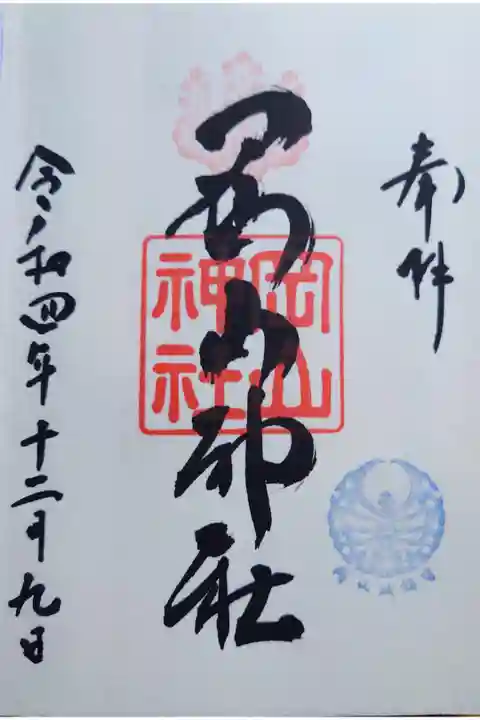 奉拝
岡山神社
岡山
神社
令和四年十二月九日